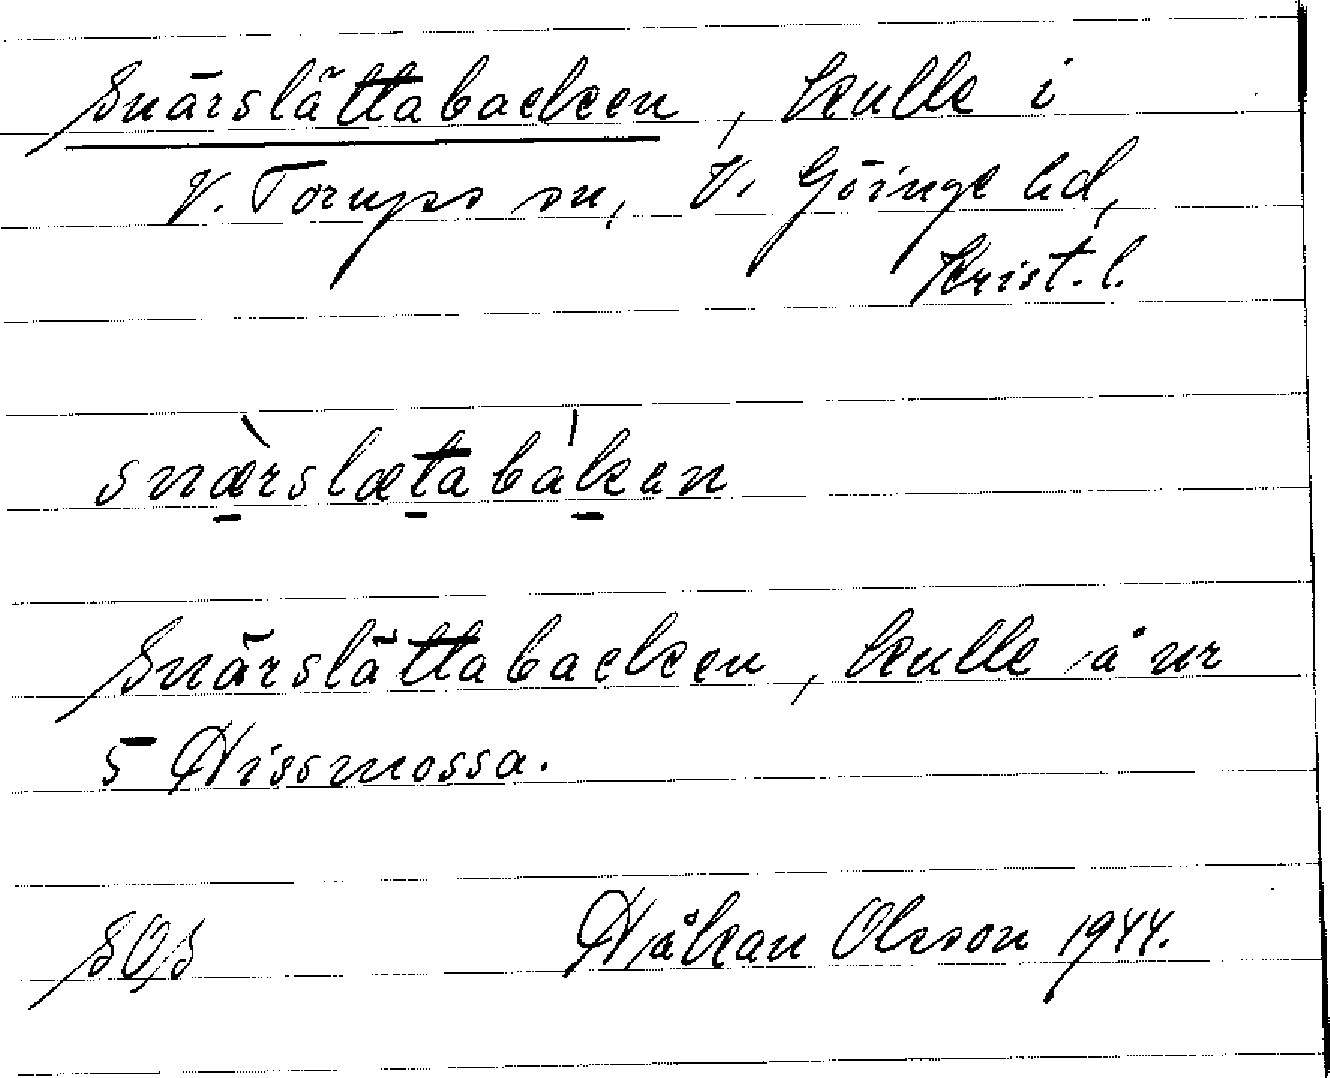 Snärslättabacken, kulle i
V. Torups sn, V. Göinge hd,
Krist. l.
snæ̀rslætaba'ken
Snärslättabacken, kulle å nr
5 Hissmossa.
SOS Håkan Olsson 1944.